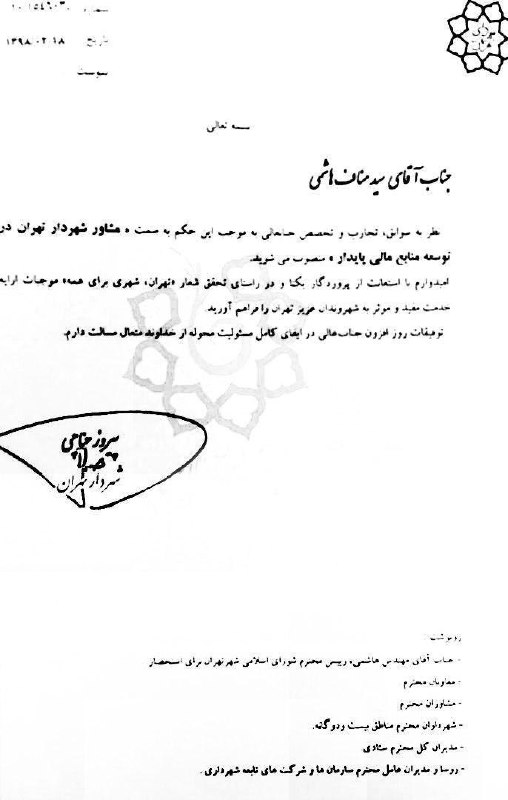 شماره ۱۰/۱۵۴۶۰۳۰
تاریخ ۱۳۹۸/۰۲/۱۸
پیوست
شهرداری تهران
بسمه تعالی
جناب آقای سید مناف هاشمی
نظر به سوابق، تجارب و تخصص جنابعالی به موجب این حکم به سمت « مشاور شهردار تهران در
توسعه منابع مالی پایدار » منصوب می شوید.
امیدوارم با استعانت از پروردگار یکتا و در راستای تحقق شعار «تهران، شهری برای همه» موجبات ارایه
خدمت مفید و موثر به شهروندان عزیز تهران را فراهم آورید.
توفیقات روز افزون جناب‌عالی در ایفای کامل مسئولیت محوله از خداوند متعال مسالت دارم.
پیروز حناچی
شهردار تهران
رونوشت
- جناب آقای مهندس هاشمی، رییس محترم شورای اسلامی شهر تهران برای استحضار
- معاونان محترم
- مشاوران محترم
- شهرداران محترم مناطق بیست ودوگانه.
- مدیران کل محترم ستادی
- روسا و مدیران عامل محترم سازمان ها و شرکت های تابعه شهرداری.